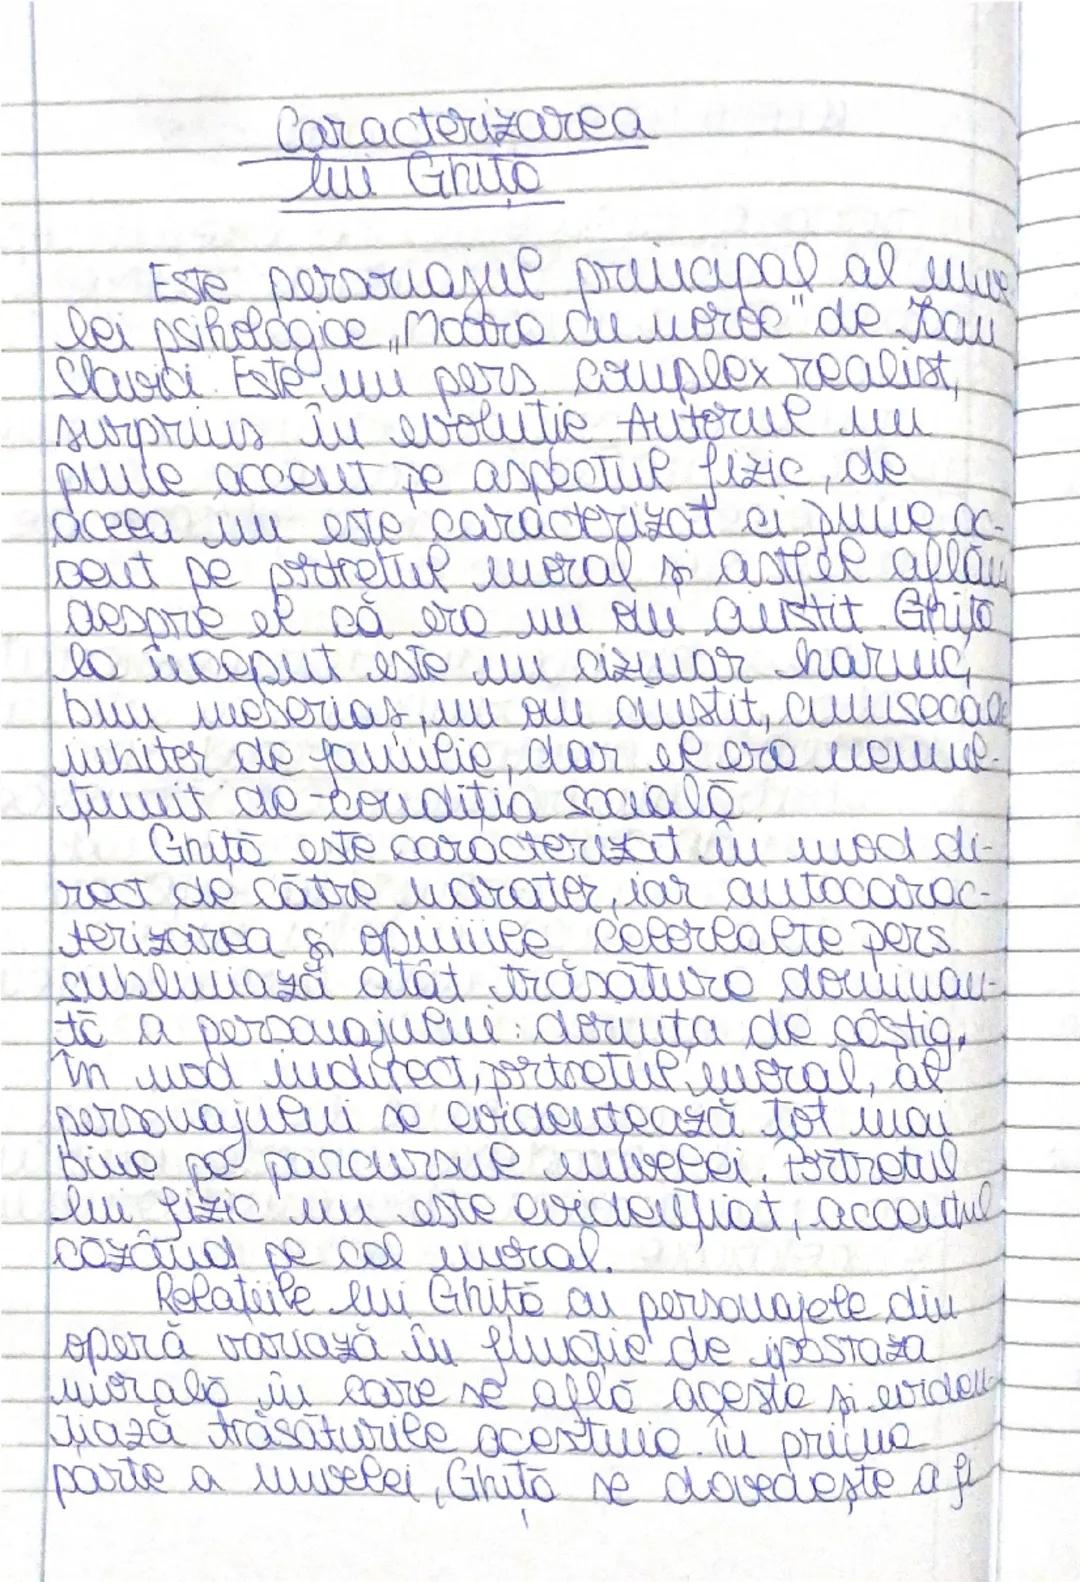 Caracterizarea
lui Ghiță
Este personajul principal al nuve
lei psihologice „Moara cu noroc" de Ioan
Slavici. Este un pers complex realist,
surprins în evoluție. Autorul nu
pune accent pe aspectul fizic, de
aceea nu este caracterizat ci pune ac-
cent pe portretul moral și astfel aflăm
despre el că era un om cinstit. Ghiță
la început este un cizmar harnic,
bun meseriaș, un om cinstit, cumsecade
iubitor de familie, dar el era nemul-
țumit de condiția socială.
Ghiță este caracterizat în mod di-
rect de către narator, iar autocarac-
terizarea și opiniile celorlalte pers
subliniază atât trăsătura dominan-
tă a personajului: dorința de câștig.
În mod indirect, portretul moral, al
personajului se evidențează tot mai
bine pe parcursul nuvelei. Portretul
lui fizic nu este evidențiat, accentul
căzând pe cel moral.
Relațiile lui Ghiță cu personajele din
operă variază în funcție de ipostaza
morală în care se află aceste și eviden-
țiază trăsăturile acestuia. În prima
parte a nuvelei, Ghiță se dovedește a fi